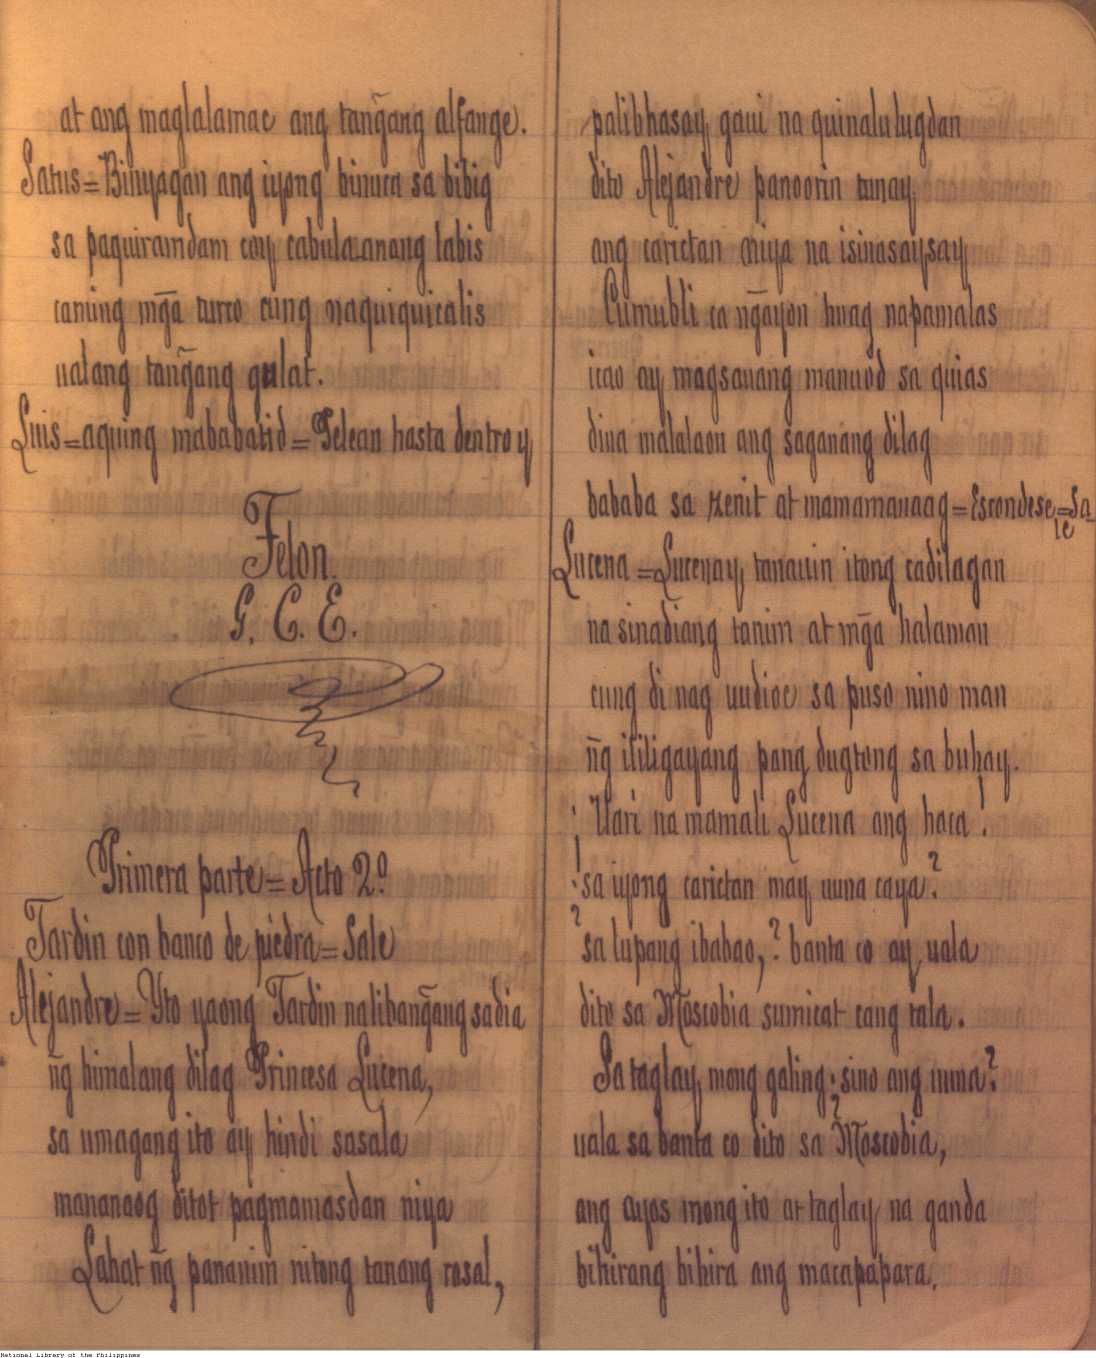 at ang maglalamac ang tañgang alfange.
Satus=Binyagan ang iyong binuca sa bibig
sa paquiramdam coy cabulaanang labis
caming mg̃a turco cung naquiquicalis
ualang tañgang gulat.
Luis=aquing mababatid=Pelean hasta dentro y
Telon.
G. C. E.
Primera parte=Acto 2º
Jardin con banco de piedra=Sale
Alejandre=Yto yaong Jardin naliban̄gang sadia
n̄g himalang dilag Princesa Lucena,
sa umagang ito ay hindi sasala
mananaog ditot pagmamasdan niya
Lahat n̄g pananim nitong tanang rosal,
palibhasay gaui na quinalulugdan
dito Alejandre panoorin tunay
ang carictan niya na isinasaysay
Cumubli ca n̄gayon huag napamalas
icao ay magsauang manuod sa quias
diua malalaon ang saganang dilag
bababa sa zenit at mamamanaag=Escondese=Sa-
le
Lucena=Lucenay, tanauin itong cadilagan
na sinadiang tanim at mg̃a halaman
cung di nag uudioc sa puso nino man
n̄g ililigayang pang dugtong sa buhay.
¡Uari na mamali Lucena ang haca!
¿sa iyong carictan may uuna caya?
¿sa lupang ibabao,? banta co ay uala
dito sa Moscobia sumicat cang tala.
Sa taglay mong galing ¿sino ang uuna?
uala sa banta co dito sa Moscobia,
ang ayos mong ito at taglay na ganda
bihirang bihira ang macapapara.